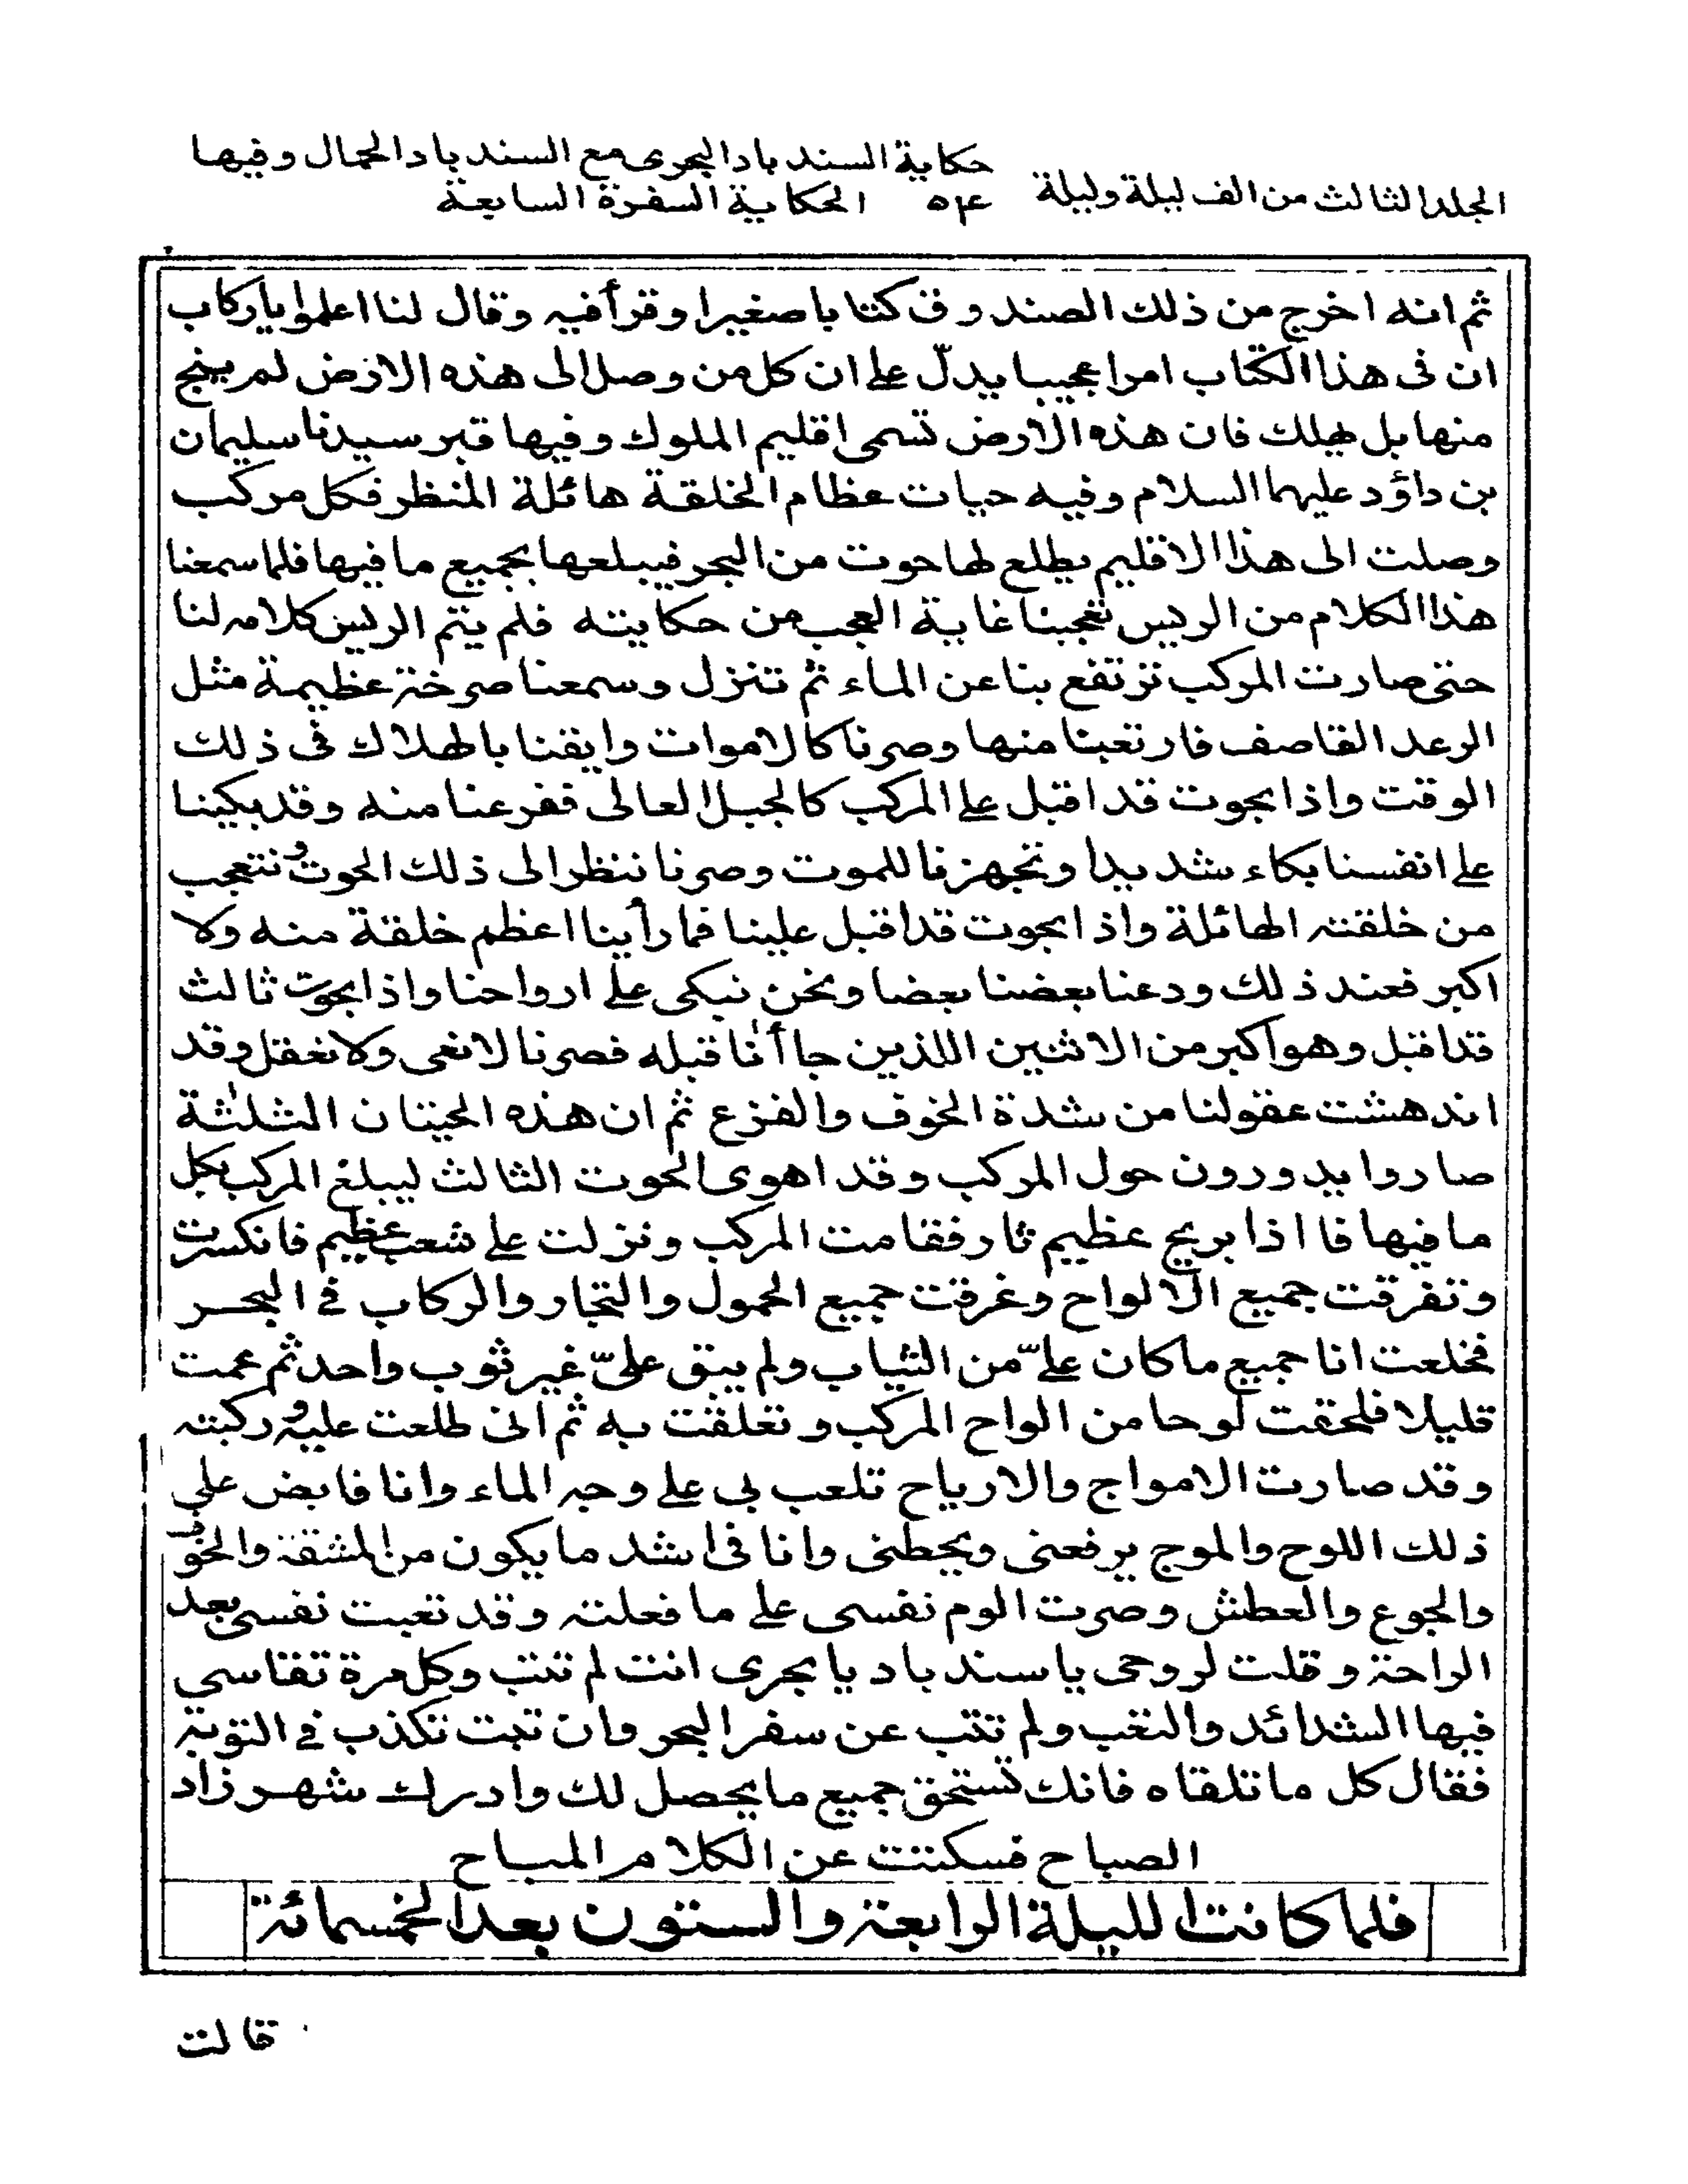 حكاية السندباد البحرى مع السندباد الحمال وفيها
المجلد الثالث من الف ليلة وليلة ٥٤ الحكاية السفرة السابعة
ثم انه اخرج من ذلك الصندوق كتابا صغيرا وقرأ فيه وقال لنا اعلموا يا ركاب
ان فى هذا الكتاب امرا عجيبا يدلّ على ان كل من وصل الى هذه الارض لم ينج
منها بل يهلك فان هذه الارض تسمى اقليم الملوك وفيها قبر سيدنا سليمان
بن داؤد عليهما السلام وفيه حيات عظام الخلقة هائلة المنظر فكل مركب
وصلت الى هذا الاقليم يطلع لها حوت من البحر فيبلعها بجميع ما فيها فلما سمعنا
هذا الكلام من الريس تعجبنا غاية العجب من حكايته فلم يتم الريس كلامه لنا
حتى صارت المركب ترتفع بنا عن الماء ثم تنزل وسمعنا صرخة عظيمة مثل
الرعد القاصف فارتعبنا منها وصرنا كالاموات وايقنا بالهلاك فى ذلك
الوقت واذا بحوت قد اقبل على المركب كالجبل العالى ففرعنا منه وقد بكينا
على انفسنا بكاء شديدا وتجهزنا للموت وصرنا ننظر الى ذلك الحوت ونتعجب
من خلقته الهائلة واذا بحوت قد اقبل علينا فما رأينا اعظم خلقة منه ولا
اكبر فعند ذلك ودعنا بعضنا بعضا ونحن نبكى على ارواحنا واذا بحوت ثالث
قد اقبل وهو اكبر من الاثنين اللذين جاأنا قبله فصرنا لا نعى ولا نعقل وقد
اندهشت عقولنا من شدة الخوف والفزع ثم ان هذه الحيتان الثلثة
صاروا يدورون حول المركب وقد اهوى الحوت الثالث ليبلغ المركب بكل
ما فيها فا اذا بريح عظيم ثار فقامت المركب ونزلت على شعب عظيم فانكسرت
وتفرقت جميع الالواح وغرقت جميع الحمول والتجار والركاب فى البحر
فخلعت انا جميع ما كان علىّ من الثياب ولم يبق علىّ غير ثوب واحد ثم عمت
قليلا فلحقت لوحا من الواح المركب وتعلقت به ثم انى طلعت عليه وركبته
وقد صارت الامواج والارياح تلعب بى على وجه الماء وانا قابض على
ذلك اللوح والموج يرفعنى ويحطنى وانا فى اشد ما يكون من المشقة والخوف
والجوع والعطش وصرت الوم نفسى على ما فعلته وقد تعبت نفسى بعد
الراحة وقلت لروحى يا سندباد يا بحرى انت لم تتب وكل مرة تقاسي
فيها الشدائد والتعب ولم تتب عن سفر البحر وان تبت تكذب فى التوبة
فقال كل ما تلقاه فانك تستحق جميع ما يحصل لك وادرك شهر زاد
الصباح فسكتت عن الكلام المباح
فلما كانت الليلة الرابعة والستون بعد الخمسمائة
قالت